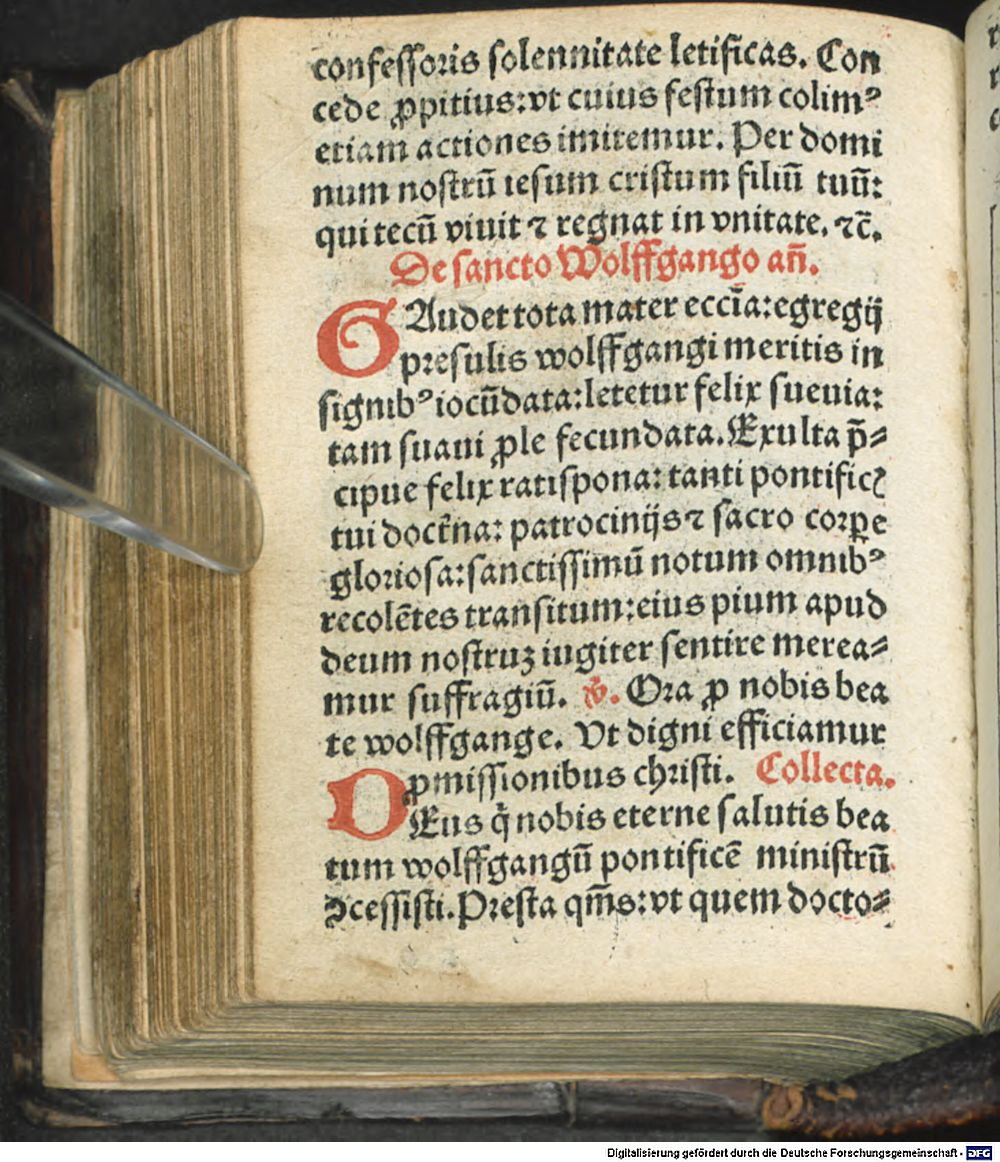 confeſſoꝛis ſolennitate letificas. Con
cede ꝓpitius:vt cuius feſtum colimꝰ
etiam actiones imitemur. Per domi
num noſtrū ieſum criſtum filiū tuū:
qui tecū viuit ⁊ regnat in vnitate. ⁊c̄.
De ſancto Wolffgango an̄.
GAudet tota mater eccĩa:egregij
preſulis wolffgangi meritis in
ſignibꝰ iocūdata:letetur felix ſueuia:
tam ſuaui ꝓle fecundata. Exulta p̄⸗
cipue felix ratiſpona: tanti pontificꝭ
tui doctr̄na: patrocinijs ⁊ ſacro coꝛꝑe
gloꝛioſa:ſanctiſſimū notum omnibꝰ
recolētes tranſitum:eius pium apud
deum noſtruꝫ iugiter ſentire merea⸗
mur ſuffragiū. ꝟ. Ora ꝓ nobis bea
te wolffgange. Vt digni efficiamur
ꝓmiſſionibus chꝛiſti. Collecta.
DEus q̇ nobis eterne ſalutis bea
tum wolffgangū pontificē miniſtrū
ꝯceſſiſti. Pꝛeſta qm̄s:vt quem docto⸗
Digitalisierung gefördert durch die Deutsche Forschungsgemeinschaft - DFG